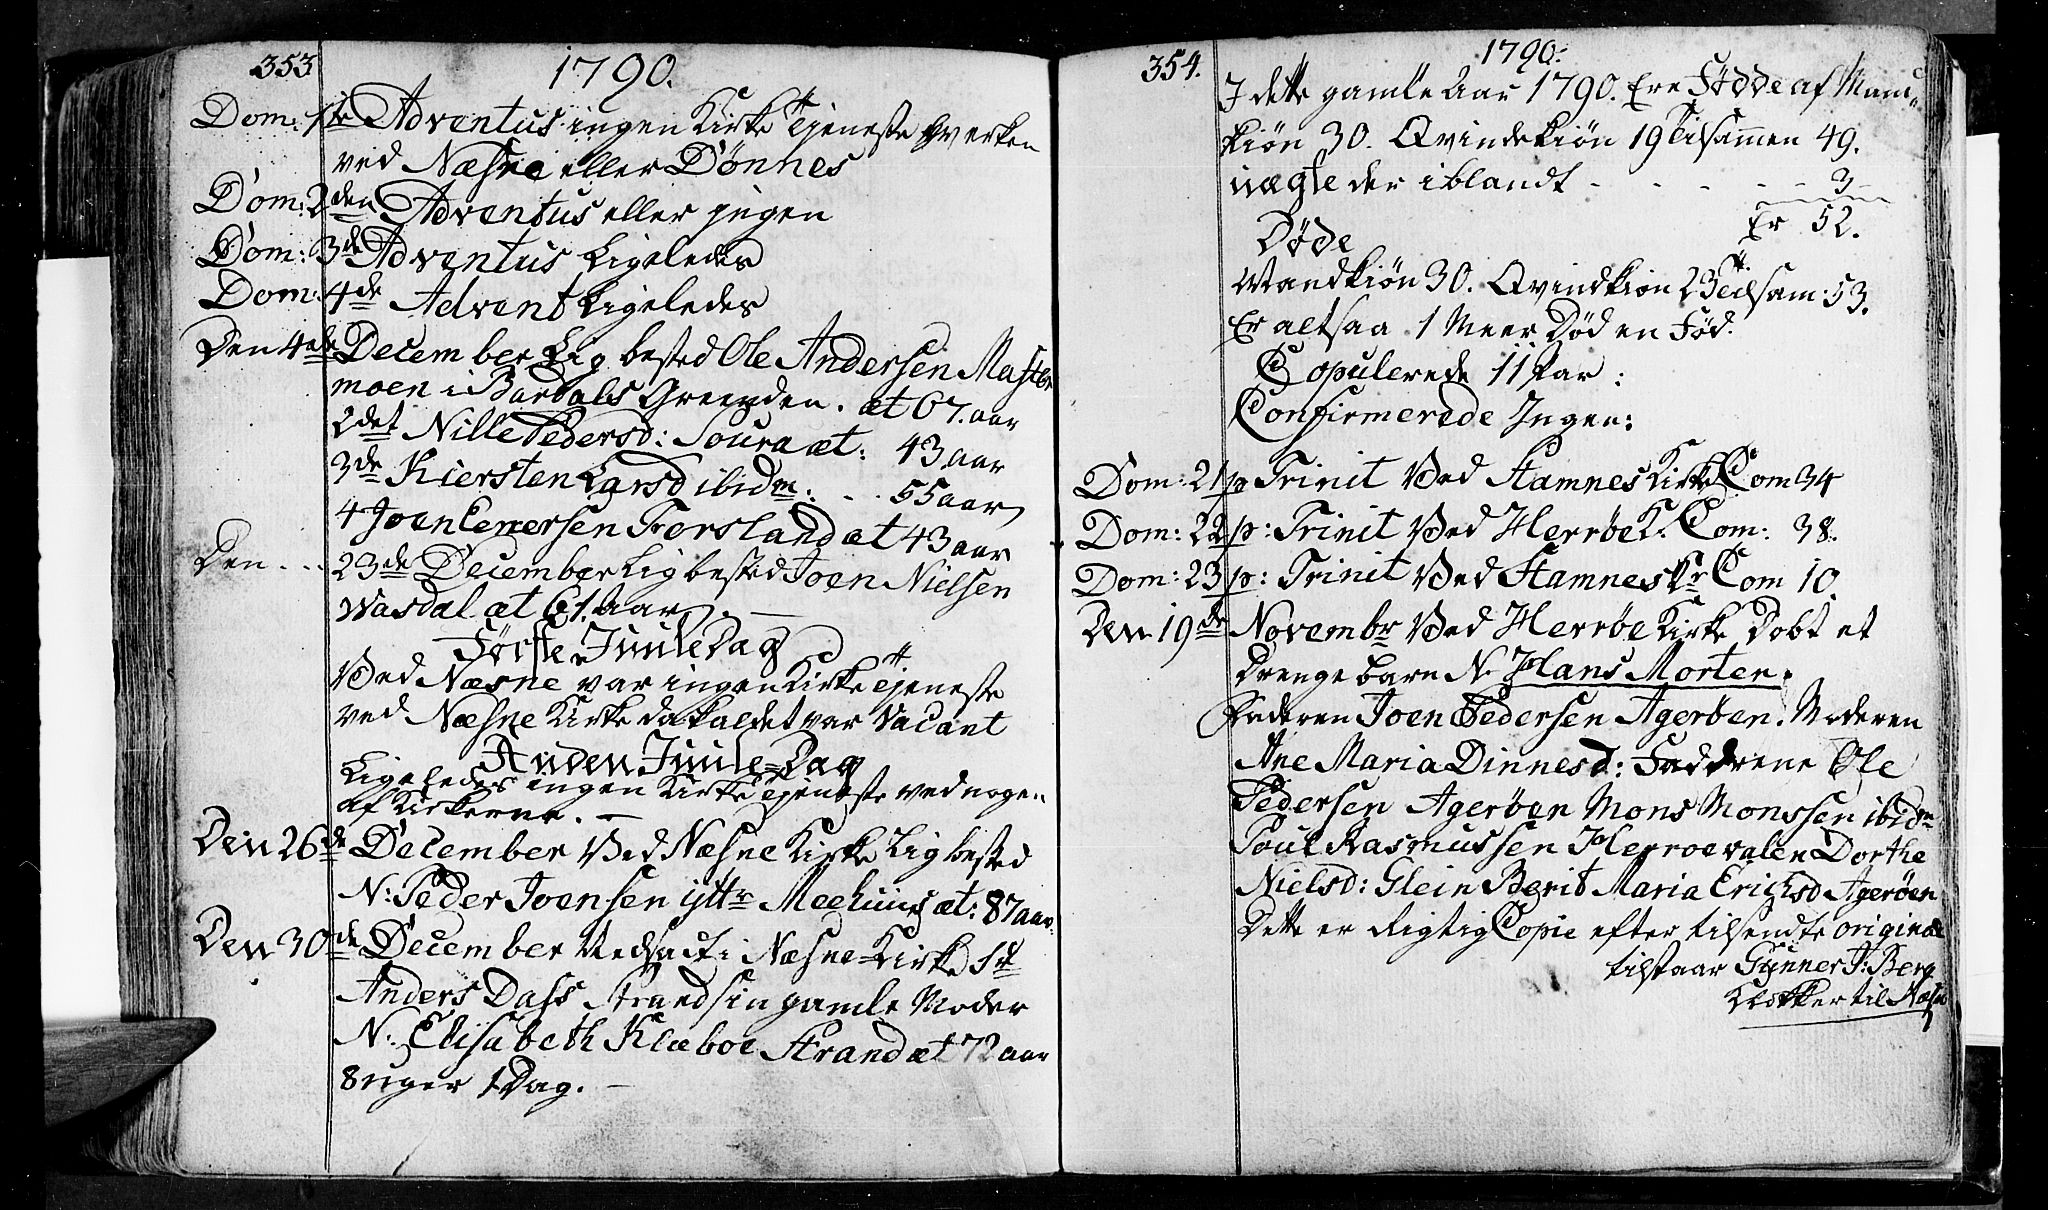 353
1790.
Dom: 1te Adventus ingen Kirke Tjeneste hverken
ved Næsne eller Dönnes
Dom: 2den Adventus eller jngen
Dom: 3de Adventus Ligeledes
Dom: 4de Advent Ligeledes
Den 4de December Lig bested Ole Andersen
moen i Bardals Greenden. æt 67. aar
2det Nille Pedersd: Soura æt: 43 aar
3de Kiersten Larsd ibidm: . . 55 aar
4 Joen Forsland æt 43 aar
Den . . . 23de December Lig bested Joen Nielsen
Wasdal æt 61. aar. —
Förste Juule Dag
Ved Næsne var ingen Kirke Tjeneste
ved Næsne Kirke da kaldet var Vacant
Anden Juule-Dag
Ligeledes ingen Kirke Tjeneste ved nogen
af Kirkerne. —
Den 26de December Ved Næsne Kirke Lig bested
N: Peder Joensen ytter Meehuus æt: 87 aar.
Den 30de December Nedsadt i Næsne-Kirke Hr
Anders Dass Strand sin gamle Moder
N: Elisabeth Klæboe Strand æt 72 aar
8 uger 1 Dag. —
354.
1790:
J dette gamle Aar 1790. Ere Födde af Man-
kiön 30. Qvindekiön 19 Tilsammen 49.
uægte der iblandt - - - - - 3
Er 52.
Döde
Mandkiön 30. Qvindkiön 23 Tilsam: 53.
Er altsaa 1 Meer Död en Föd.
Copulerede 11 Par:
Confirmerede Jngen:
Dom: 21 p Trinit Ved Stamnes Kirke Com 34
Dom: 22 p: Trinit Ved Herröe K. Com: 38.
Dom: 23 p: Trinit Ved Stamnes Kr Com 10.
Den 19de Novembr Ved Herröe Kirke Döbt et
Drenge barn N. Hans Morten.
Faderen Joen Pedersen Ageröen. Moderen
Ane Maria Dinnesd: Faddrene Ole
Pedersen Ageröen Mons Monssen ibidm
Poul Rasmussen Herroevalen Dorthe
Nielsd: Glein Berit Maria Erichsd Ageröen
Dette er Rigtig Copie efter tilsendte original
tilstaar Gunner J: Berg
Klokker til Næsne